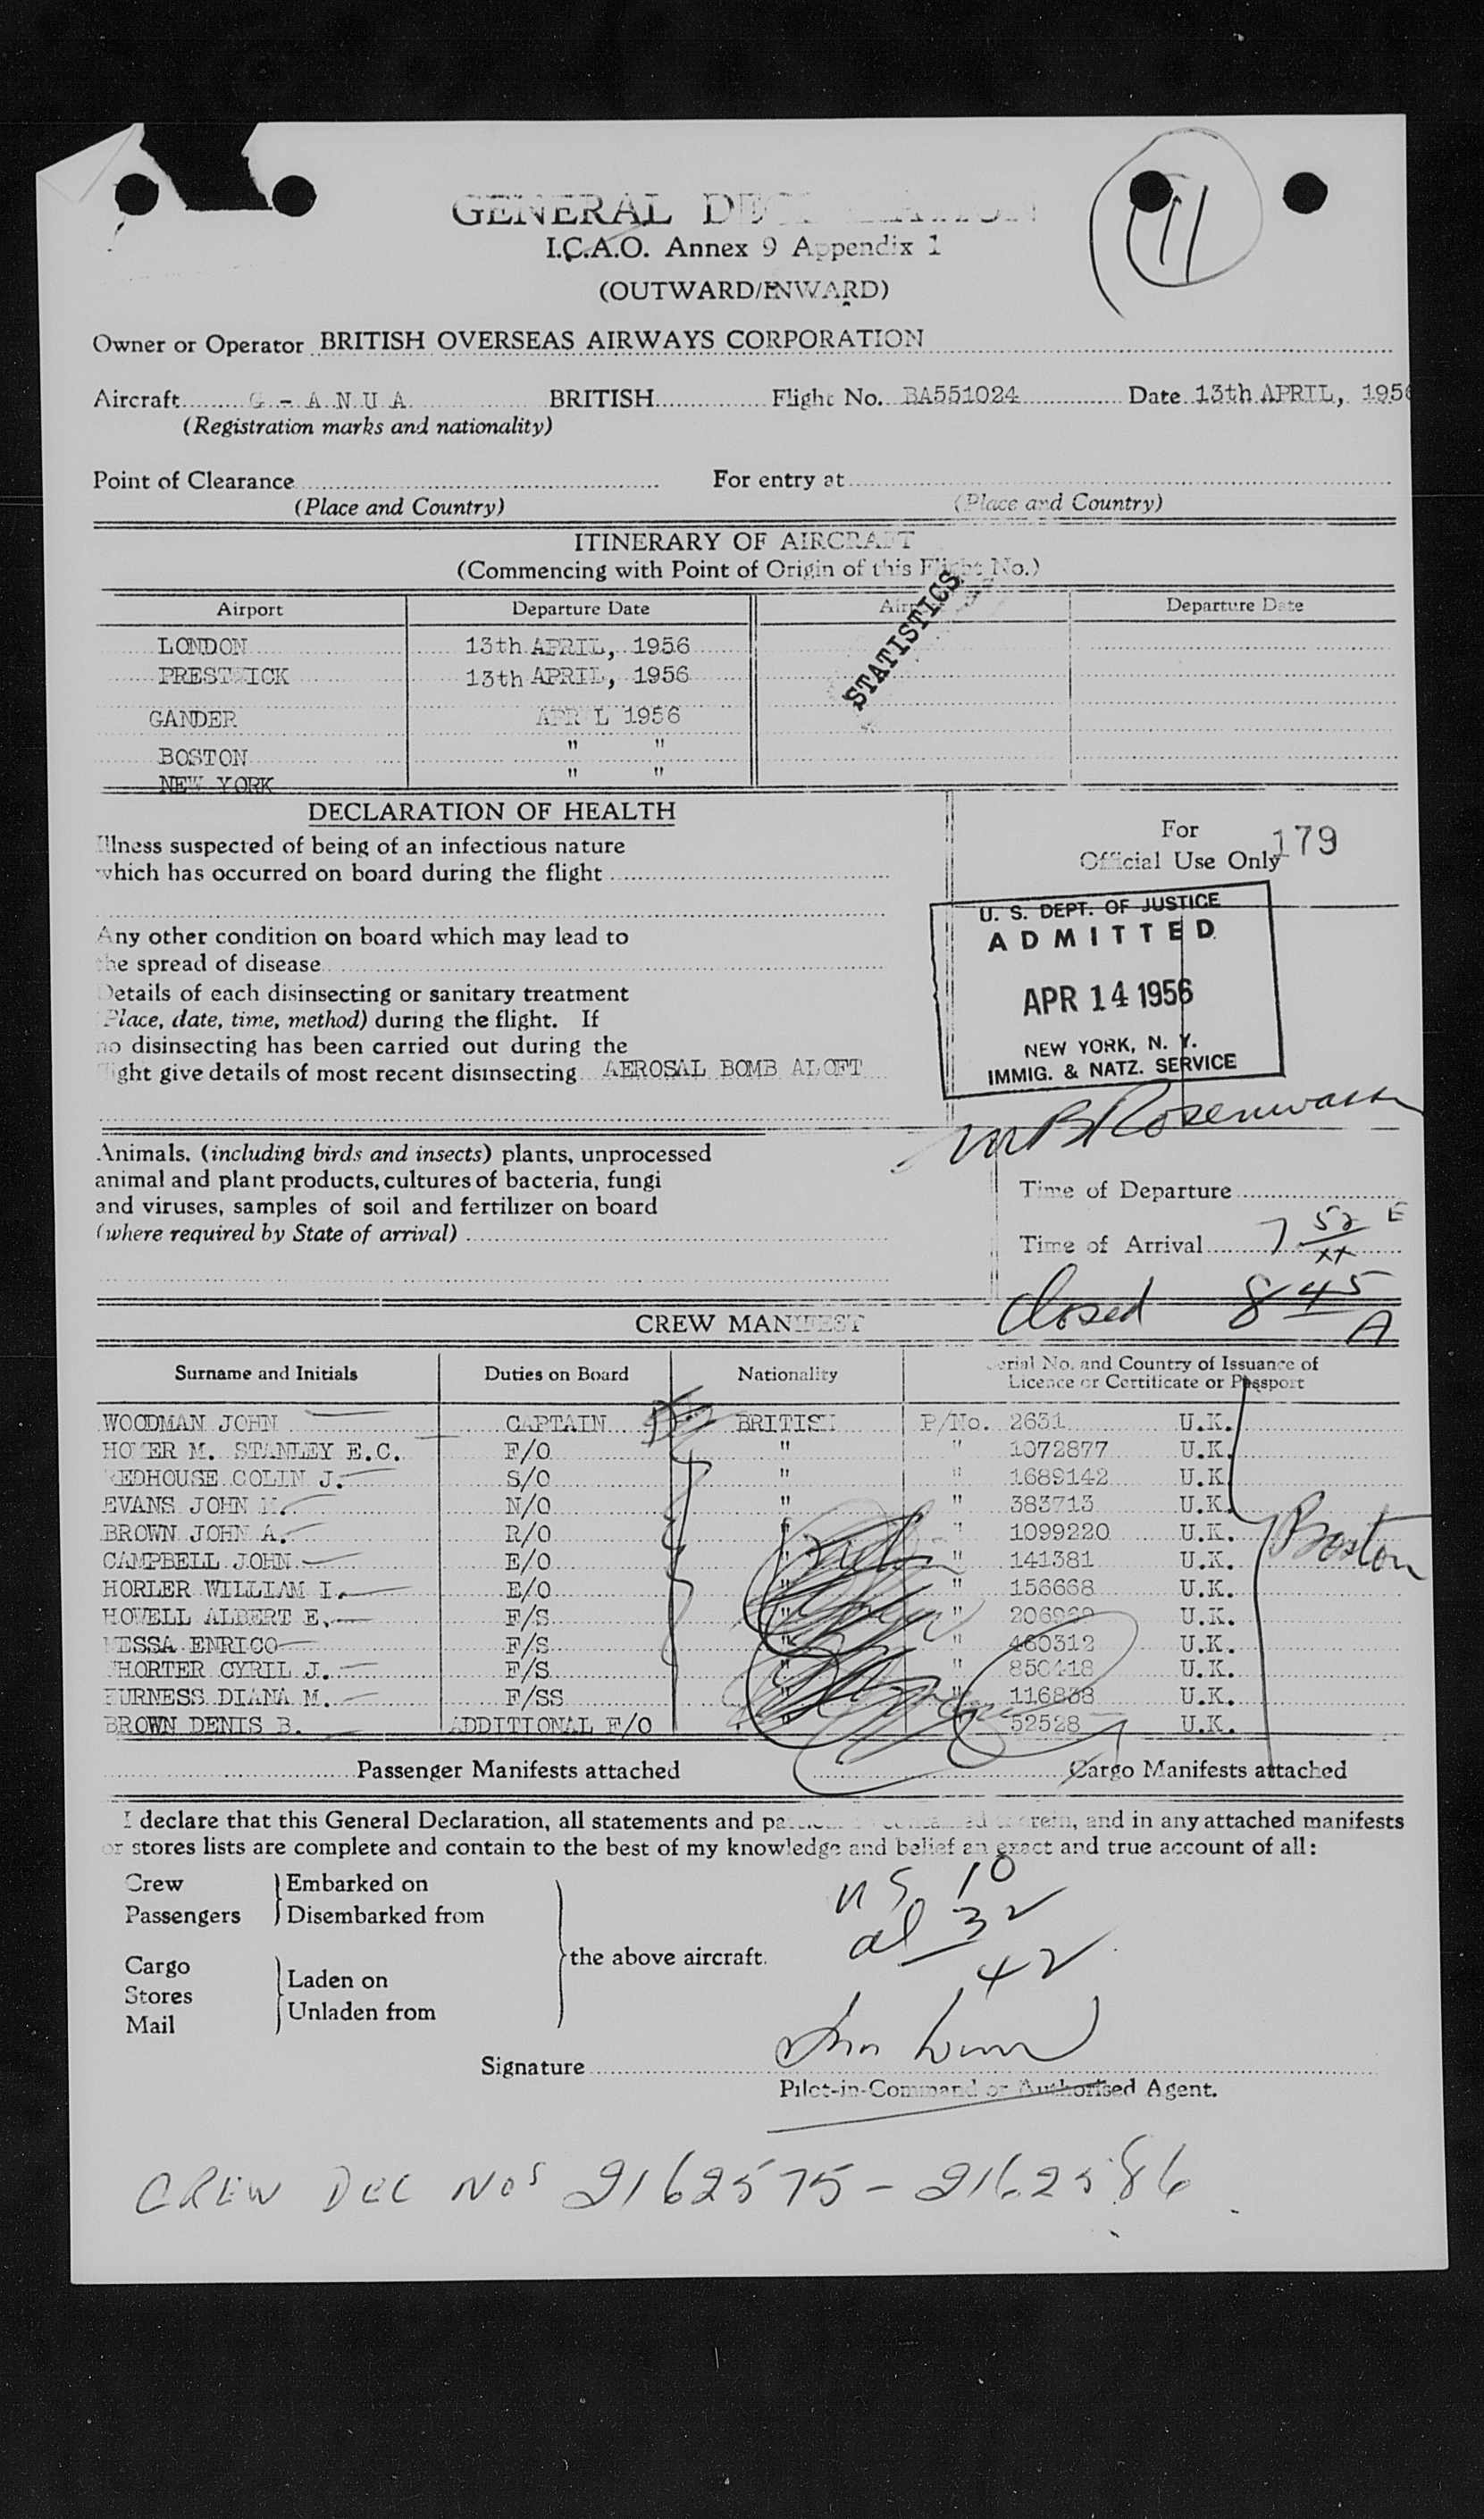 GENERAL DECLARATION
I.C.A.O. Annex 9 Appendix 1
(OUTWARD/INWARD)
11
Owner or Operator BRITISH OVERSEAS AIRWAYS CORPORATION
Aircraft G - A N U A BRITISH Flight No. BA551024 Date 13th APRIL, 1956
(Registration marks and nationality)
Point of Clearance For entry at
(Place and Country) (Place and Country)
ITINERARY OF AIRCRAFT
(Commencing with Point of Origin of this Flight No.)
Airport Departure Date Airport Departure Date
STATISTICS
LONDON 13th APRIL, 1956
PRESTWICK 13th APRIL, 1956
GANDER APRIL 1956
BOSTON " "
NEW YORK " "
DECLARATION OF HEALTH
For
Official Use Only 179
Illness suspected of being of an infectious nature
which has occurred on board during the flight
Any other condition on board which may lead to
the spread of disease
Details of each disinsecting or sanitary treatment
(Place, date, time, method) during the flight. If
no disinsecting has been carried out during the
flight give details of most recent disinsecting AEROSAL BOMB ALOFT
U. S. DEPT. OF JUSTICE
ADMITTED
APR 14 1956
NEW YORK, N. Y.
IMMIG. & NATZ. SERVICE
Animals, (including birds and insects) plants, unprocessed
animal and plant products, cultures of bacteria, fungi
and viruses, samples of soil and fertilizer on board
(where required by State of arrival)
Time of Departure
Time of Arrival 7 52 E
Closed 8 45 A
CREW MANIFEST
Surname and Initials Duties on Board Nationality Serial No. and Country of Issuance of
Licence or Certificate or Passport
WOODMAN JOHN CAPTAIN BRITISH P/No. 2631 U.K.
HOWER M. STANLEY E.C. F/O " " 1072877 U.K.
REDHOUSE COLIN J. S/O " " 1689142 U.K.
EVANS JOHN N/O " " 383713 U.K.
BROWN JOHN A. R/O " " 1099220 U.K.
CAMPBELL JOHN E/O " " 141381 U.K.
HORLER WILLIAM I. E/O " " 156668 U.K.
HOWELL ALBERT E. F/S " " U.K.
MESSA ENRICO F/S " " 460312 U.K.
CYRIL J. F/S " " 850418 U.K.
FURNESS DIANA M. F/SS " " 116838 U.K.
BROWN DENIS B. ADDITIONAL F/O " 52528 U.K.
Boston
Passenger Manifests attached Cargo Manifests attached
I declare that this General Declaration, all statements and particulars contained therein, and in any attached manifests
or stores lists are complete and contain to the best of my knowledge and belief an exact and true account of all:
Crew Embarked on
Passengers Disembarked from
the above aircraft.
Cargo Laden on
Stores
Mail Unladen from
US 10
al 32
42
Signature
Pilot-in-Command or Authorised Agent.
CREW DEC Nos 2162575 - 2162586